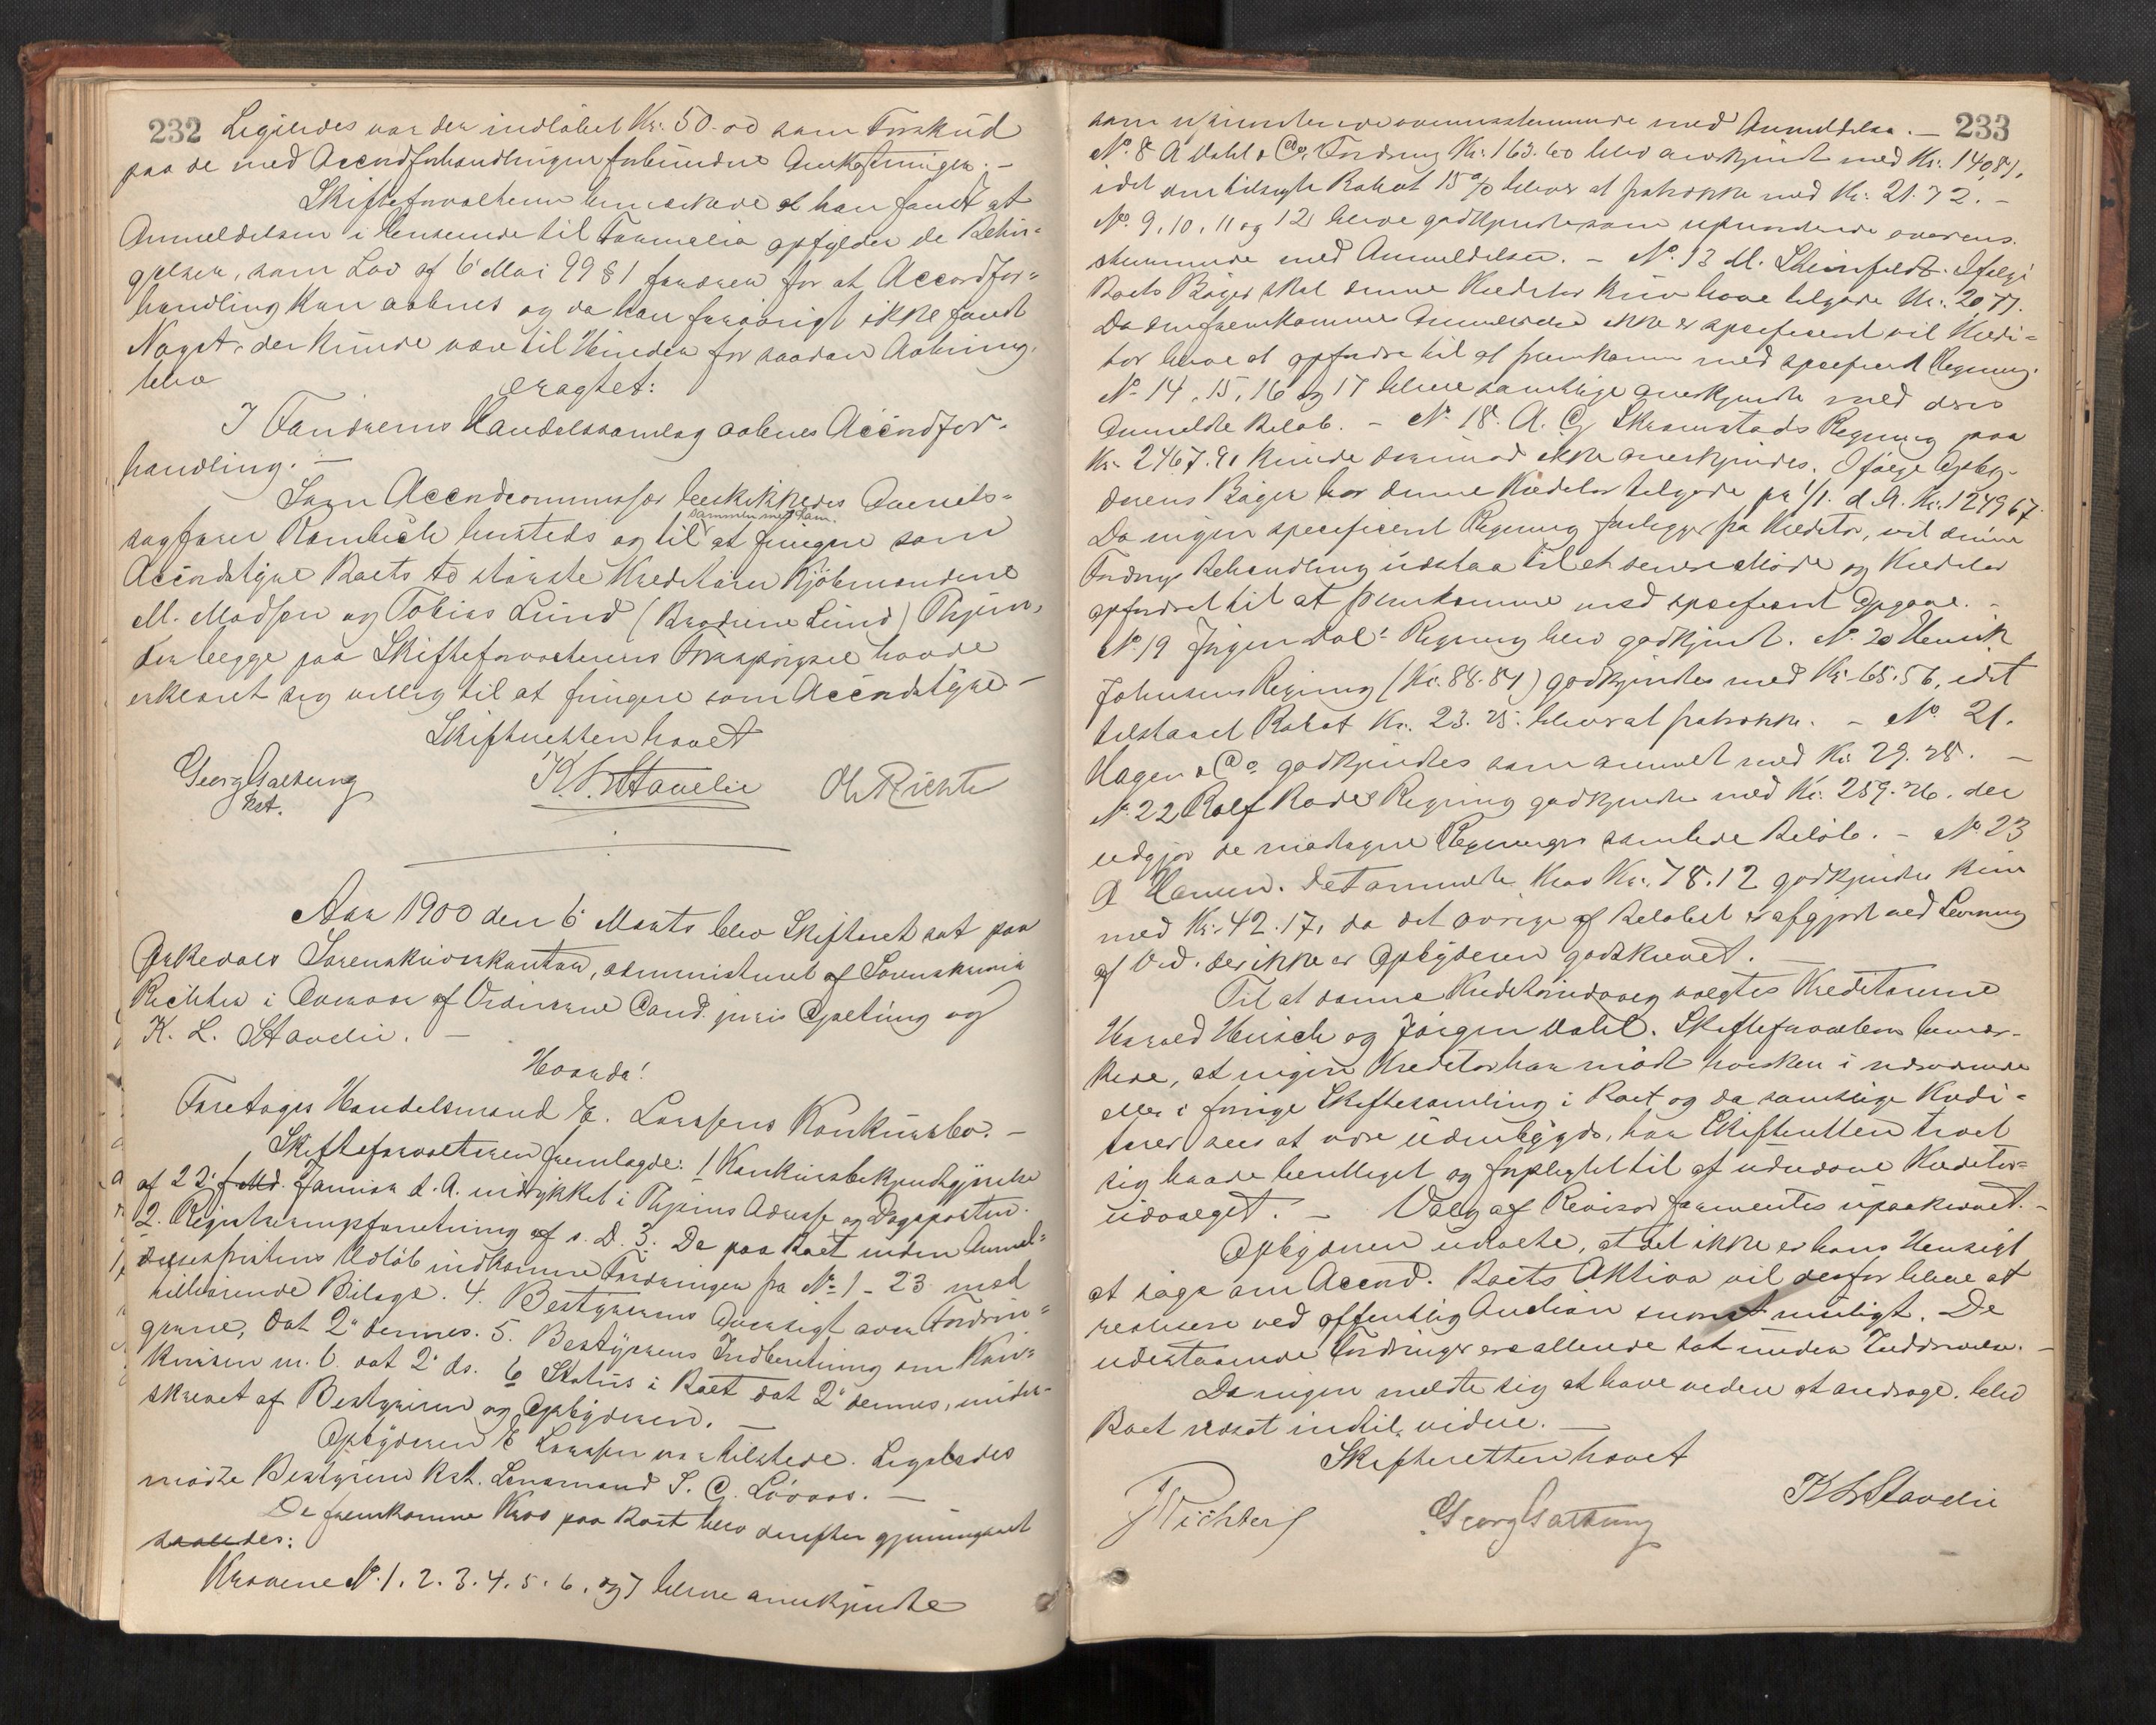 232
Ligeledes var der indløbet Kr. 50.00 som Forskud
paa de med Accordforhandlingen forbundne Omkostninger. –
Skifteforvalteren bemærkede at han fandt at
Anmeldelsen i Henseende til Formalia opfylder de Betin=
gelser, som Lov af 6 Mai 99 § 1 fordrer for at Accordfor=
handling kan aabnes og da han forøvrigt ikke fandt
Noget, der kunde være til Hinder for saadan Aabning,
blev
eragtet:
I Fandrems Handelssamlag aabnes Accordfor-
handling. –
Som Accordcommissær beskikkedes Overrets=
sammen med ham
sagfører Rambech hersteds og til at fungere som
Accordstyre Boets to største Kreditorer Kjøbmændene
M. Madsen og Tobias Lund (Brødrene Lund) Thjem,
der begge paa Skifteforvalterens Forespørgsel havde
erklæret sig villig til at fungere som Accordstyre –
Skifteretten hævet
Georg Galtung
kst.
K. L. Stavelie
Ol. Richter
Aar 1900 den 6 Marts blev Skifteret sat paa
Orkedals Sorenskriverkontor, administreret af Sorenskriver
Richter i Overvær af Vidnerne Cand. juris Galtung og
K. L. Stavelie. –
Hvorda!
Foretoges Handelsmand E. Larssens Konkursbo. –
Skifteforvalteren fremlagde: 1 Konkursbekjendtgjørelse
af 22 f. Md. Januar d. A. indrykket i Thjems Adresse og Dagsposten.
2. Registreringsforretning af s. D. 3. De paa Boet inden Anmel=
delsesfristens Udløb indkomne Fordringer fra No 1 – 23 med
tilhørende Bilage. 4. Bestyrerens Oversigt over Fordrin=
gerne, dat 2 dennes. 5. Bestyrerens Indberetning om Kon=
kursen m. v. dat 2 ds. 6 Status i Boet dat 2 dennes, under-
skrevet af Bestyreren og Opbyderen. –
Opbyderen E Larssen var tilstede. Ligeledes
mødte Bestyreren kst. Lensmand S. C. Løvaas. –
De fremkomne Krav paa Boet blev derefter gjennemgaaet
saaledes:
Kravene No. 1. 2. 3. 4. 5. 6. og 7 bleve anerkjendte
233
som overensstemmende med Anmeldelsen. –
No. 8 A Dahl & Co. Fordring Kr. 163.60 blev anerkjendt med Kr. 140.81,
idet den tilsagte Rabat 15 % bliver at fratrække med Kr. 21.72. –
No. 9, 10, 11 og 12 bleve godkjendte som overens-
stemmende med Anmeldelsen. – No. 13 M. Steinfeldt. Ifølge
Boets Bøger skal denne Kreditor kun have tilgode Kr. 20.77.
Da den fremkomne Anmeldelse ikke er specificeret vil Kredi=
tor blive at opfordre til at fremkomme med specificeret Regning.
No 14, 15, 16 og 17 bleve samtlige anerkjendte med deres
anmeldte Beløb. – No. 18. A. C. Skramstads Regning paa
Kr. 2467.91 kunde derimod ikke anerkjendes. Ifølge Opby-
derens Bøger har denne Kreditor tilgode pr 1/1 d. A. Kr. 1249.67.
Da ingen specificeret Regning foreligger fra Kreditor, vil denne
Fordrings Behandling udstaa til et senere Møde og Kreditor
opfordret til at fremkomme med specificeret Opgave. –
No. 19 Jørgen Dals Regning blev godkjendt. No. 20 Henrik
Johnsens Regning (Kr. 88.81) godkjendtes med Kr. 65.56, idet
tilstaaet Rabat Kr. 23.25 bliver at fratrække. – No. 21.
Hagen & Co godkjendtes som anmeldt med Kr. 29.28. –
No. 22 Rolf Rodes Regning godkjendtes med Kr. 259.26, der
udgjør de modtagne Regningers samlede Beløb. – No. 23
A Hansen. Det anmeldte Krav Kr. 78.12 godkjendtes kun
med Kr. 42.17, da det øvrige af Beløbet er afgjort ved Levering
af Ved, der ikke er Opbyderen godskrevet. –
Til at danne Kreditorudvalg valgtes Kreditorerne
Harald Hirsch og Jørgen Dahl. Skifteforvalteren bemær-
kede, at ingen Kreditor har mødt hverken i nærværende
eller i forrige Skiftesamling i Boet og da samtlige Kredi=
torer sees at være udenbygds, har Skifteretten troet
sig baade berettiget og forpligtet til at udnævne Kreditor=
udvalget. – Valg af Revisor formentes upaakrævet. –
Opbyderen udtalte, at det ikke er hans Hensigt
at søge om Accord. Boets Aktiva vil derfor blive at
realisere ved offentlig Auction snarest muligt. De
udestaaende Fordringer er allerede sat under Inddrivelse. –
Da ingen meldte sig at have videre at andrage, blev
Boet udsat indtil videre. –
Skifteretten hævet
Richter
Georg Galtung
K L Stavelie